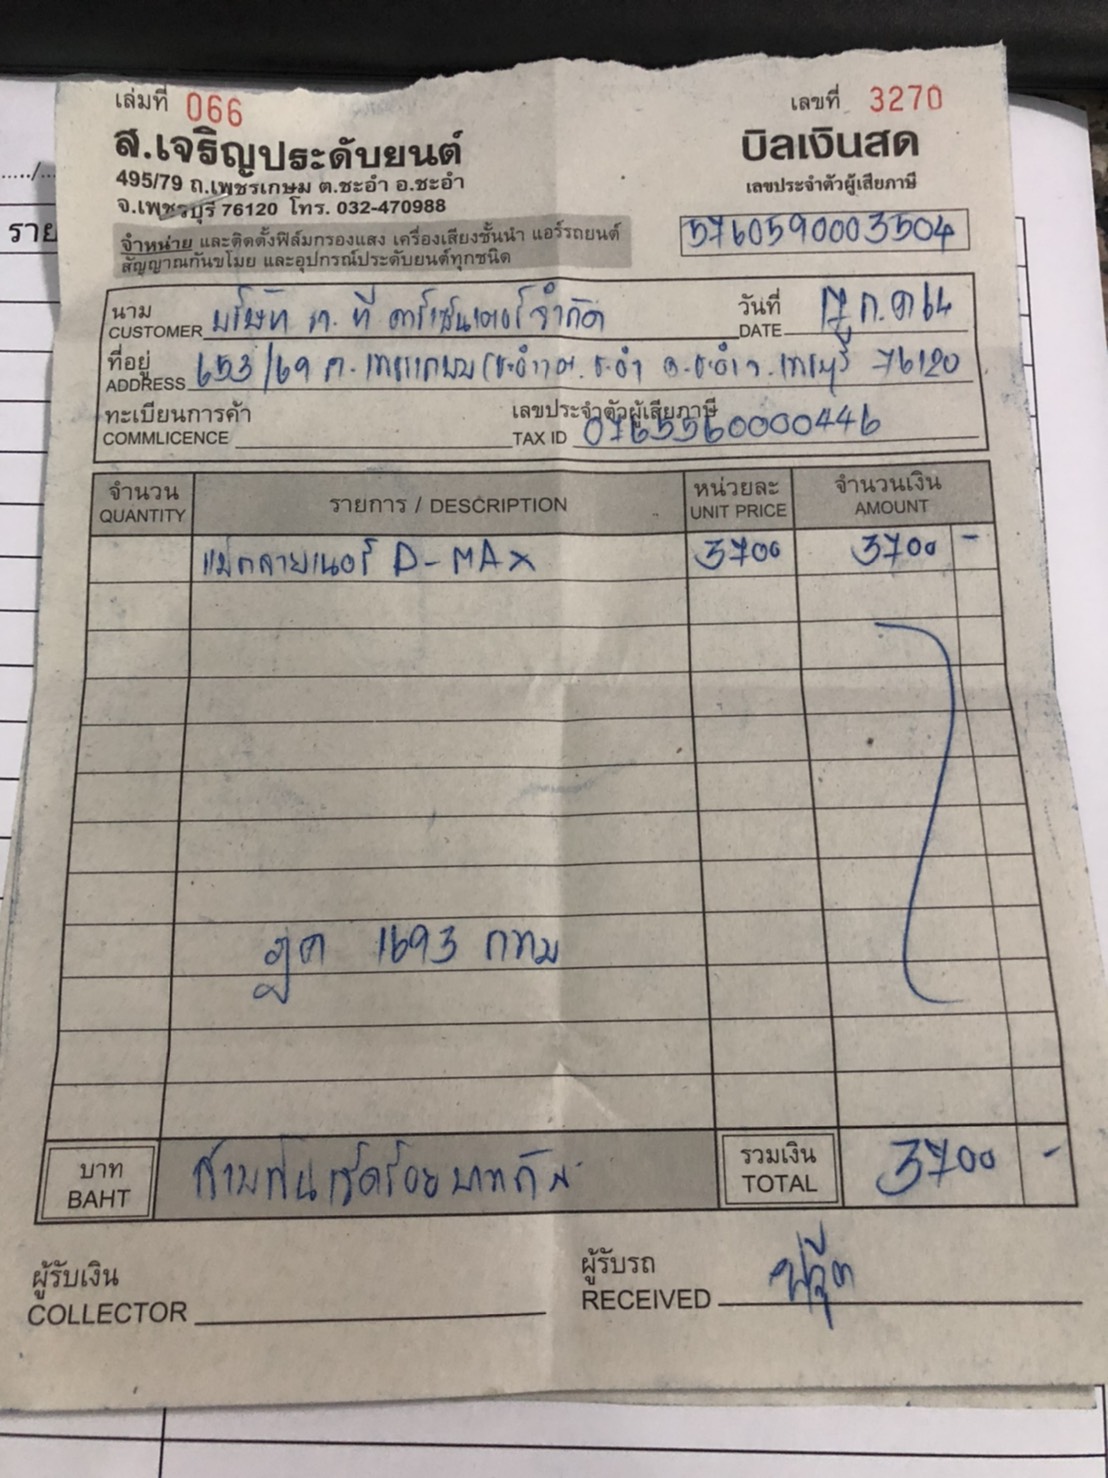 เล่มที่ 066 เลขที่ 3270
ส.เจริญประดับยนต์ บิลเงินสด
495/79 ถ.เพชรเกษม ต.ชะอำ อ.ชะอำ เลขประจำตัวผู้เสียภาษี
จ.เพชรบุรี 76120 โทร. 032-470988
5760590003504
จำหน่าย และติดตั้งฟิล์มกรองแสง เครื่องเสียงชั้นนำ แอร์รถยนต์
สัญญาณกันขโมย และอุปกรณ์ประดับยนต์ทุกชนิด
นาม บริษัท ที คาร์เซ็นเตอร์ จำกัด วันที่ ก.ค 64
CUSTOMER DATE
ที่อยู่ 653/69 ถ. เพชรเกษม ต. ชะอำ อ.ชะอำ จ.เพชรบุรี 76120
ADDRESS
ทะเบียนการค้า เลขประจำตัวผู้เสียภาษี
COMMLICENCE TAX ID 0765560000446
จำนวน รายการ / DESCRIPTION หน่วยละ จำนวนเงิน
QUANTITY UNIT PRICE AMOUNT
แม็คลายเนอร์ D-MAX 3700 3700 -
1693 กทม
บาท สามพันเจ็ดร้อยบาทถ้วน รวมเงิน 3700 -
BAHT TOTAL
ผู้รับเงิน ผู้รับรถ
COLLECTOR RECEIVED
ราย